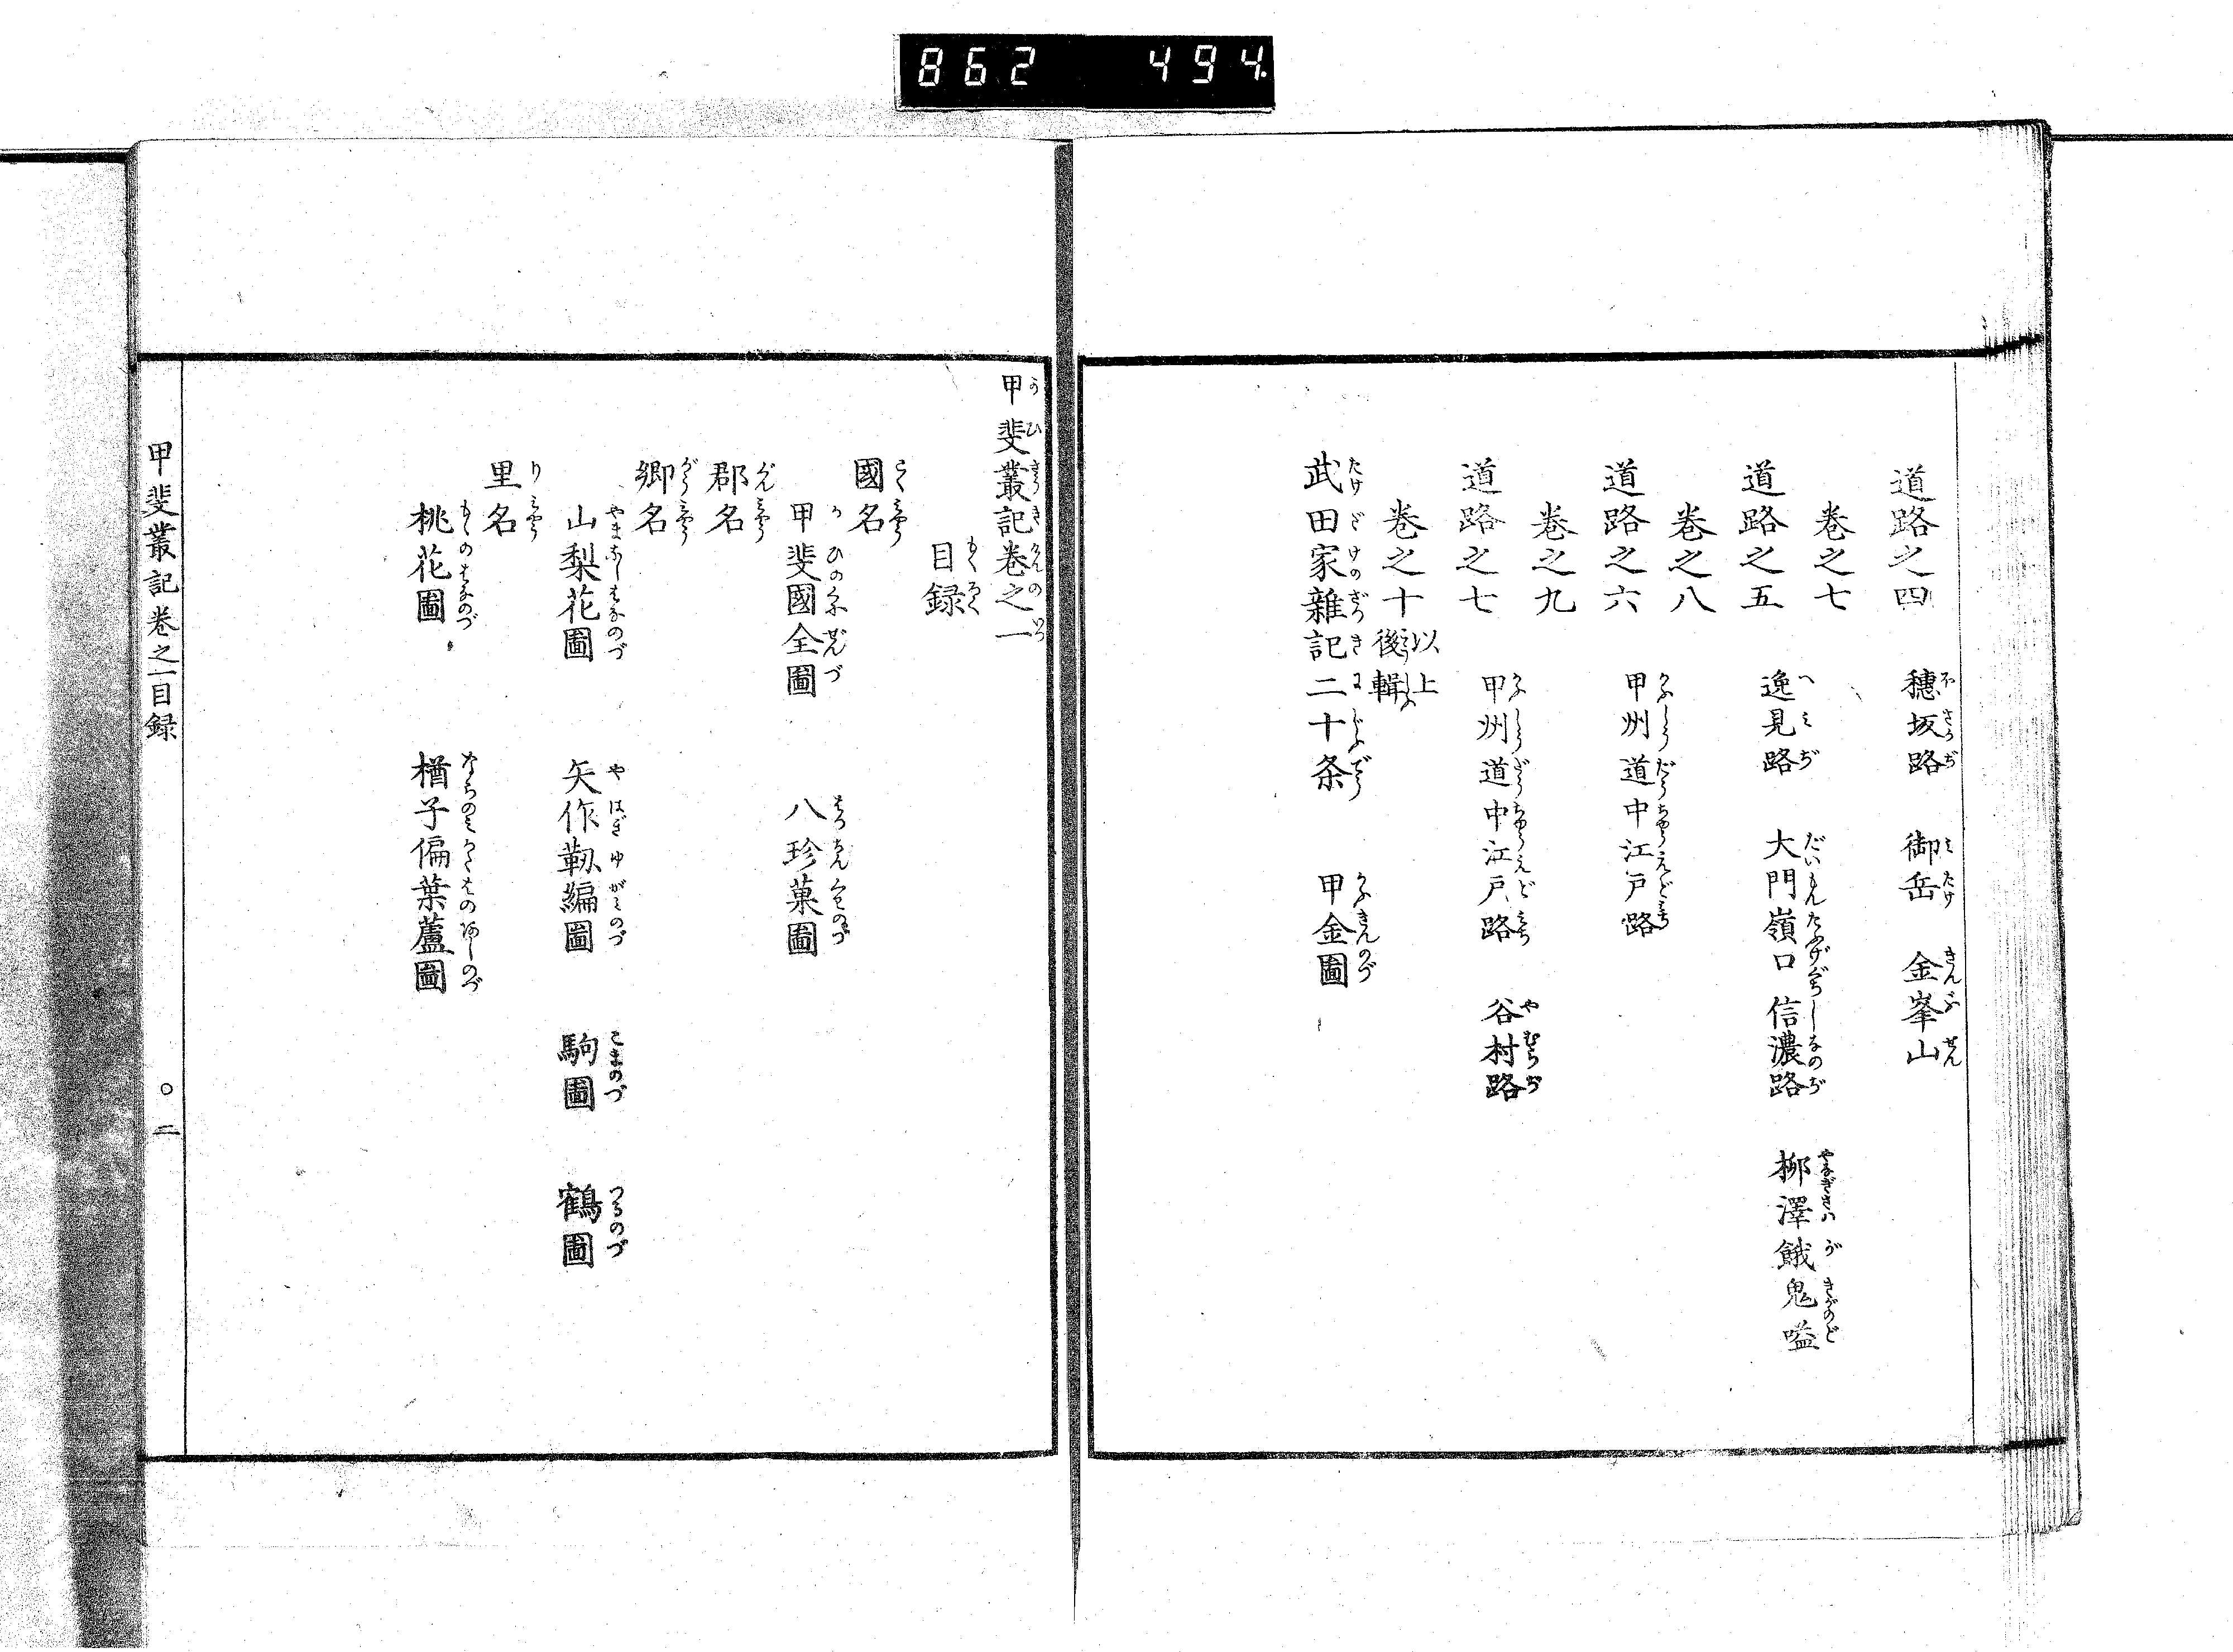 862 494.
道路之四 穗坂路 御岳 金峯山
巻之七
道路之五 逸見路 大門嶺口 信濃路 柳澤餓鬼嗌
巻之八
道路之六 甲州道中江戸路
巻之九
道路之七 甲州道中江戸路 谷村路
巻之十 以上後輯
武田家雜記二十条 甲金圖
甲斐叢記巻之一
目録
國名
甲斐國全圖 八珍菓圖
郡名
郷名
山梨花圖 矢作靱編圖 駒圖 鶴圖
里名
桃花圖 楢子偏葉蘆圖
甲斐叢記巻之一目録 ○二